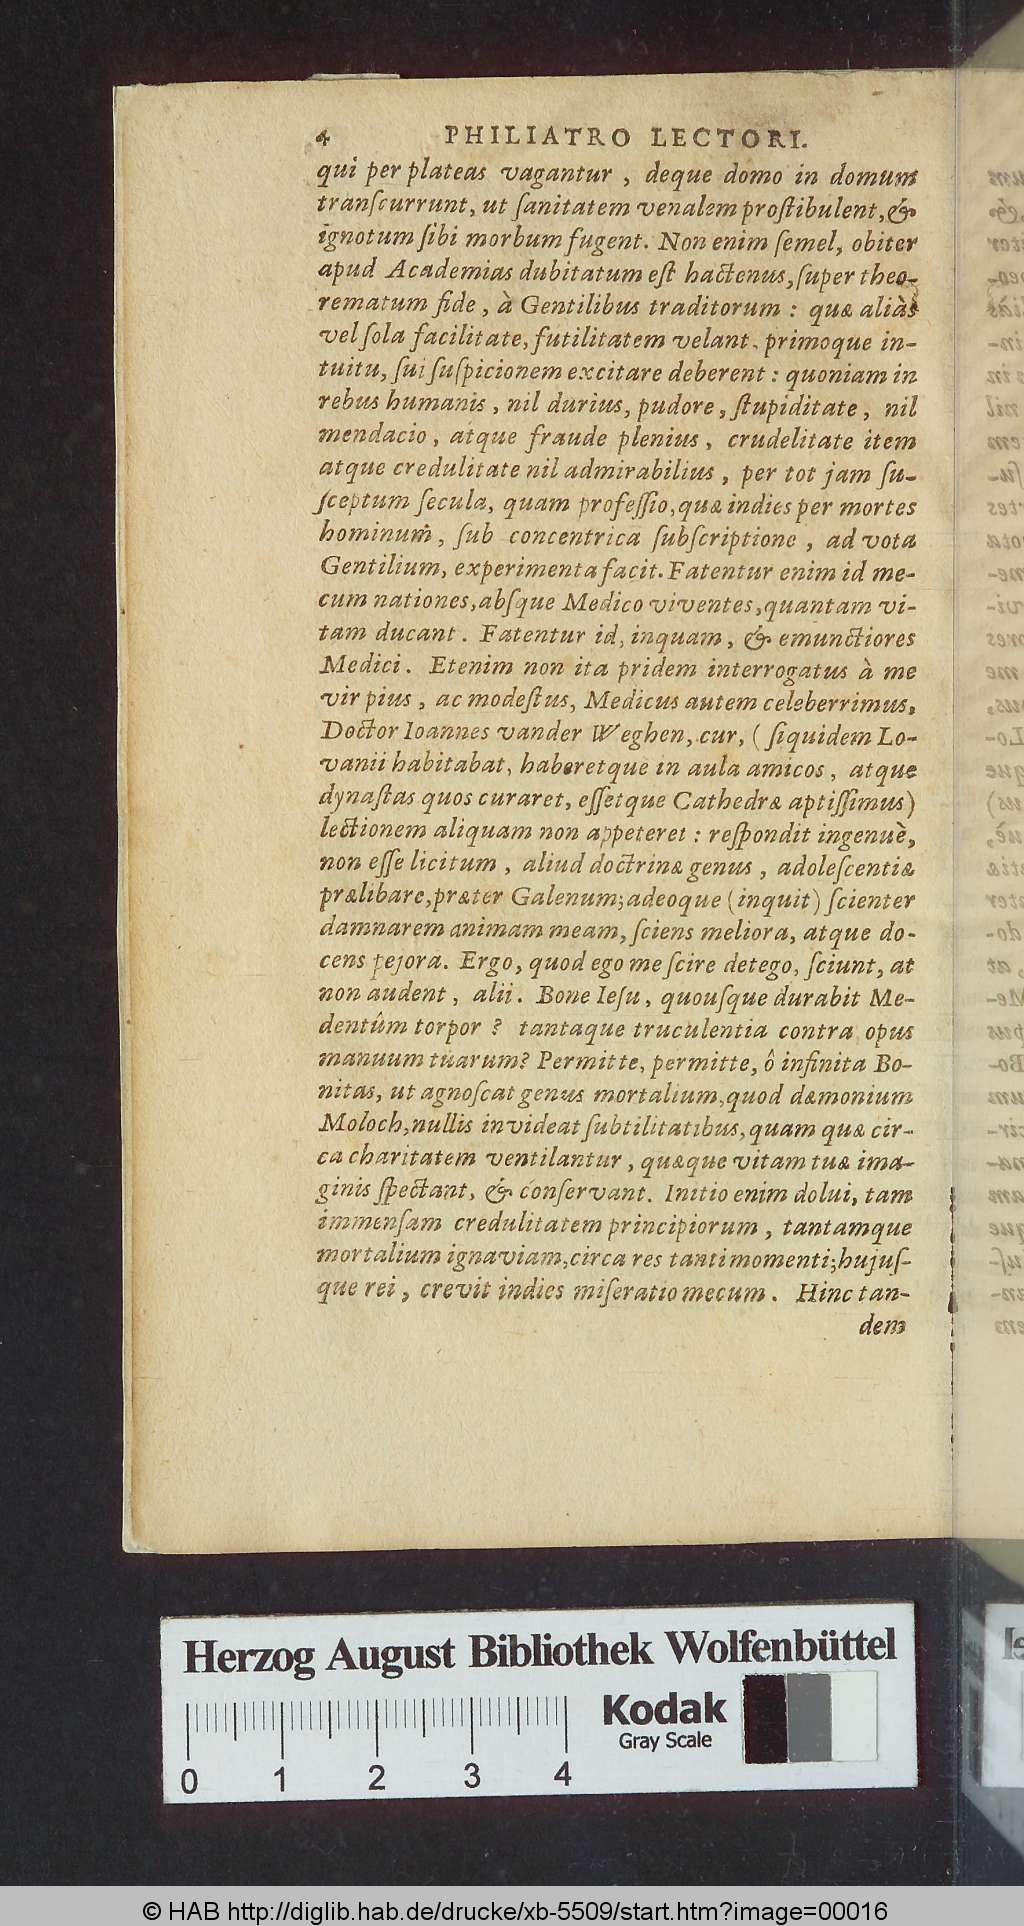 4 PHILIATRO LECTORI.
qui per plateas vagantur, deque domo in domum
tranſcurrunt, ut ſanitatem venalem proſtibulent, &
ignotum ſibi morbum fugent. Non enim ſemel, obiter
apud Academias dubitatum eſt hactenus, ſuper theo-
rematum fide, à Gentilibus traditorum : quæ aliàs
vel ſola facilitate, futilitatem velant, primoque in-
tuitu, ſui ſuſpicionem excitare deberent : quoniam in
rebus humanis, nil durius, pudore, ſtupiditate, nil
mendacio, atque fraude plenius, crudelitate item
atque credulitate nil admirabilius, per tot jam ſu-
ſceptum ſecula, quam profeſſio, quæ indies per mortes
hominum, ſub concentrica ſubſcriptione, ad vota
Gentilium, experimenta facit. Fatentur enim id me-
cum nationes, abſque Medico viventes, quantam vi-
tam ducant. Fatentur id, inquam, & emunctiores
Medici. Etenim non ita pridem interrogatus à me
vir pius, ac modeſtus, Medicus autem celeberrimus,
Doctor Ioannes vander Weghen, cur, ( ſiquidem Lo-
vanii habitabat, haberetque in aula amicos, atque
dynaſtas quos curaret, eſſetque Cathedræ aptiſſimus)
lectionem aliquam non appeteret : reſpondit ingenuè,
non eſſe licitum, aliud doctrinæ genus, adoleſcentiæ
prælibare, præter Galenum; adeoque (inquit) ſcienter
damnarem animam meam, ſciens meliora, atque do-
cens pejora. Ergo, quod ego me ſcire detego, ſciunt, at
non audent, alii. Bone Ieſu, quouſque durabit Me-
dentûm torpor ? tantaque truculentia contra opus
manuum tuarum? Permitte, permitte, ô infinita Bo-
nitas, ut agnoſcat genus mortalium, quod dæmonium
Moloch, nullis invideat ſubtilitatibus, quam quæ cir-
ca charitatem ventilantur, quæque vitam tuæ ima-
ginis ſpectant, & conſervant. Initio enim dolui, tam
immenſam credulitatem principiorum, tantamque
mortalium ignaviam, circa res tanti momenti; hujuſ-
que rei, crevit indies miſeratio mecum. Hinc tan-
dem
Herzog August Bibliothek Wolfenbüttel
Kodak
Gray Scale
0 1 2 3 4
© HAB http://diglib.hab.de/drucke/xb-5509/start.htm?image=00016